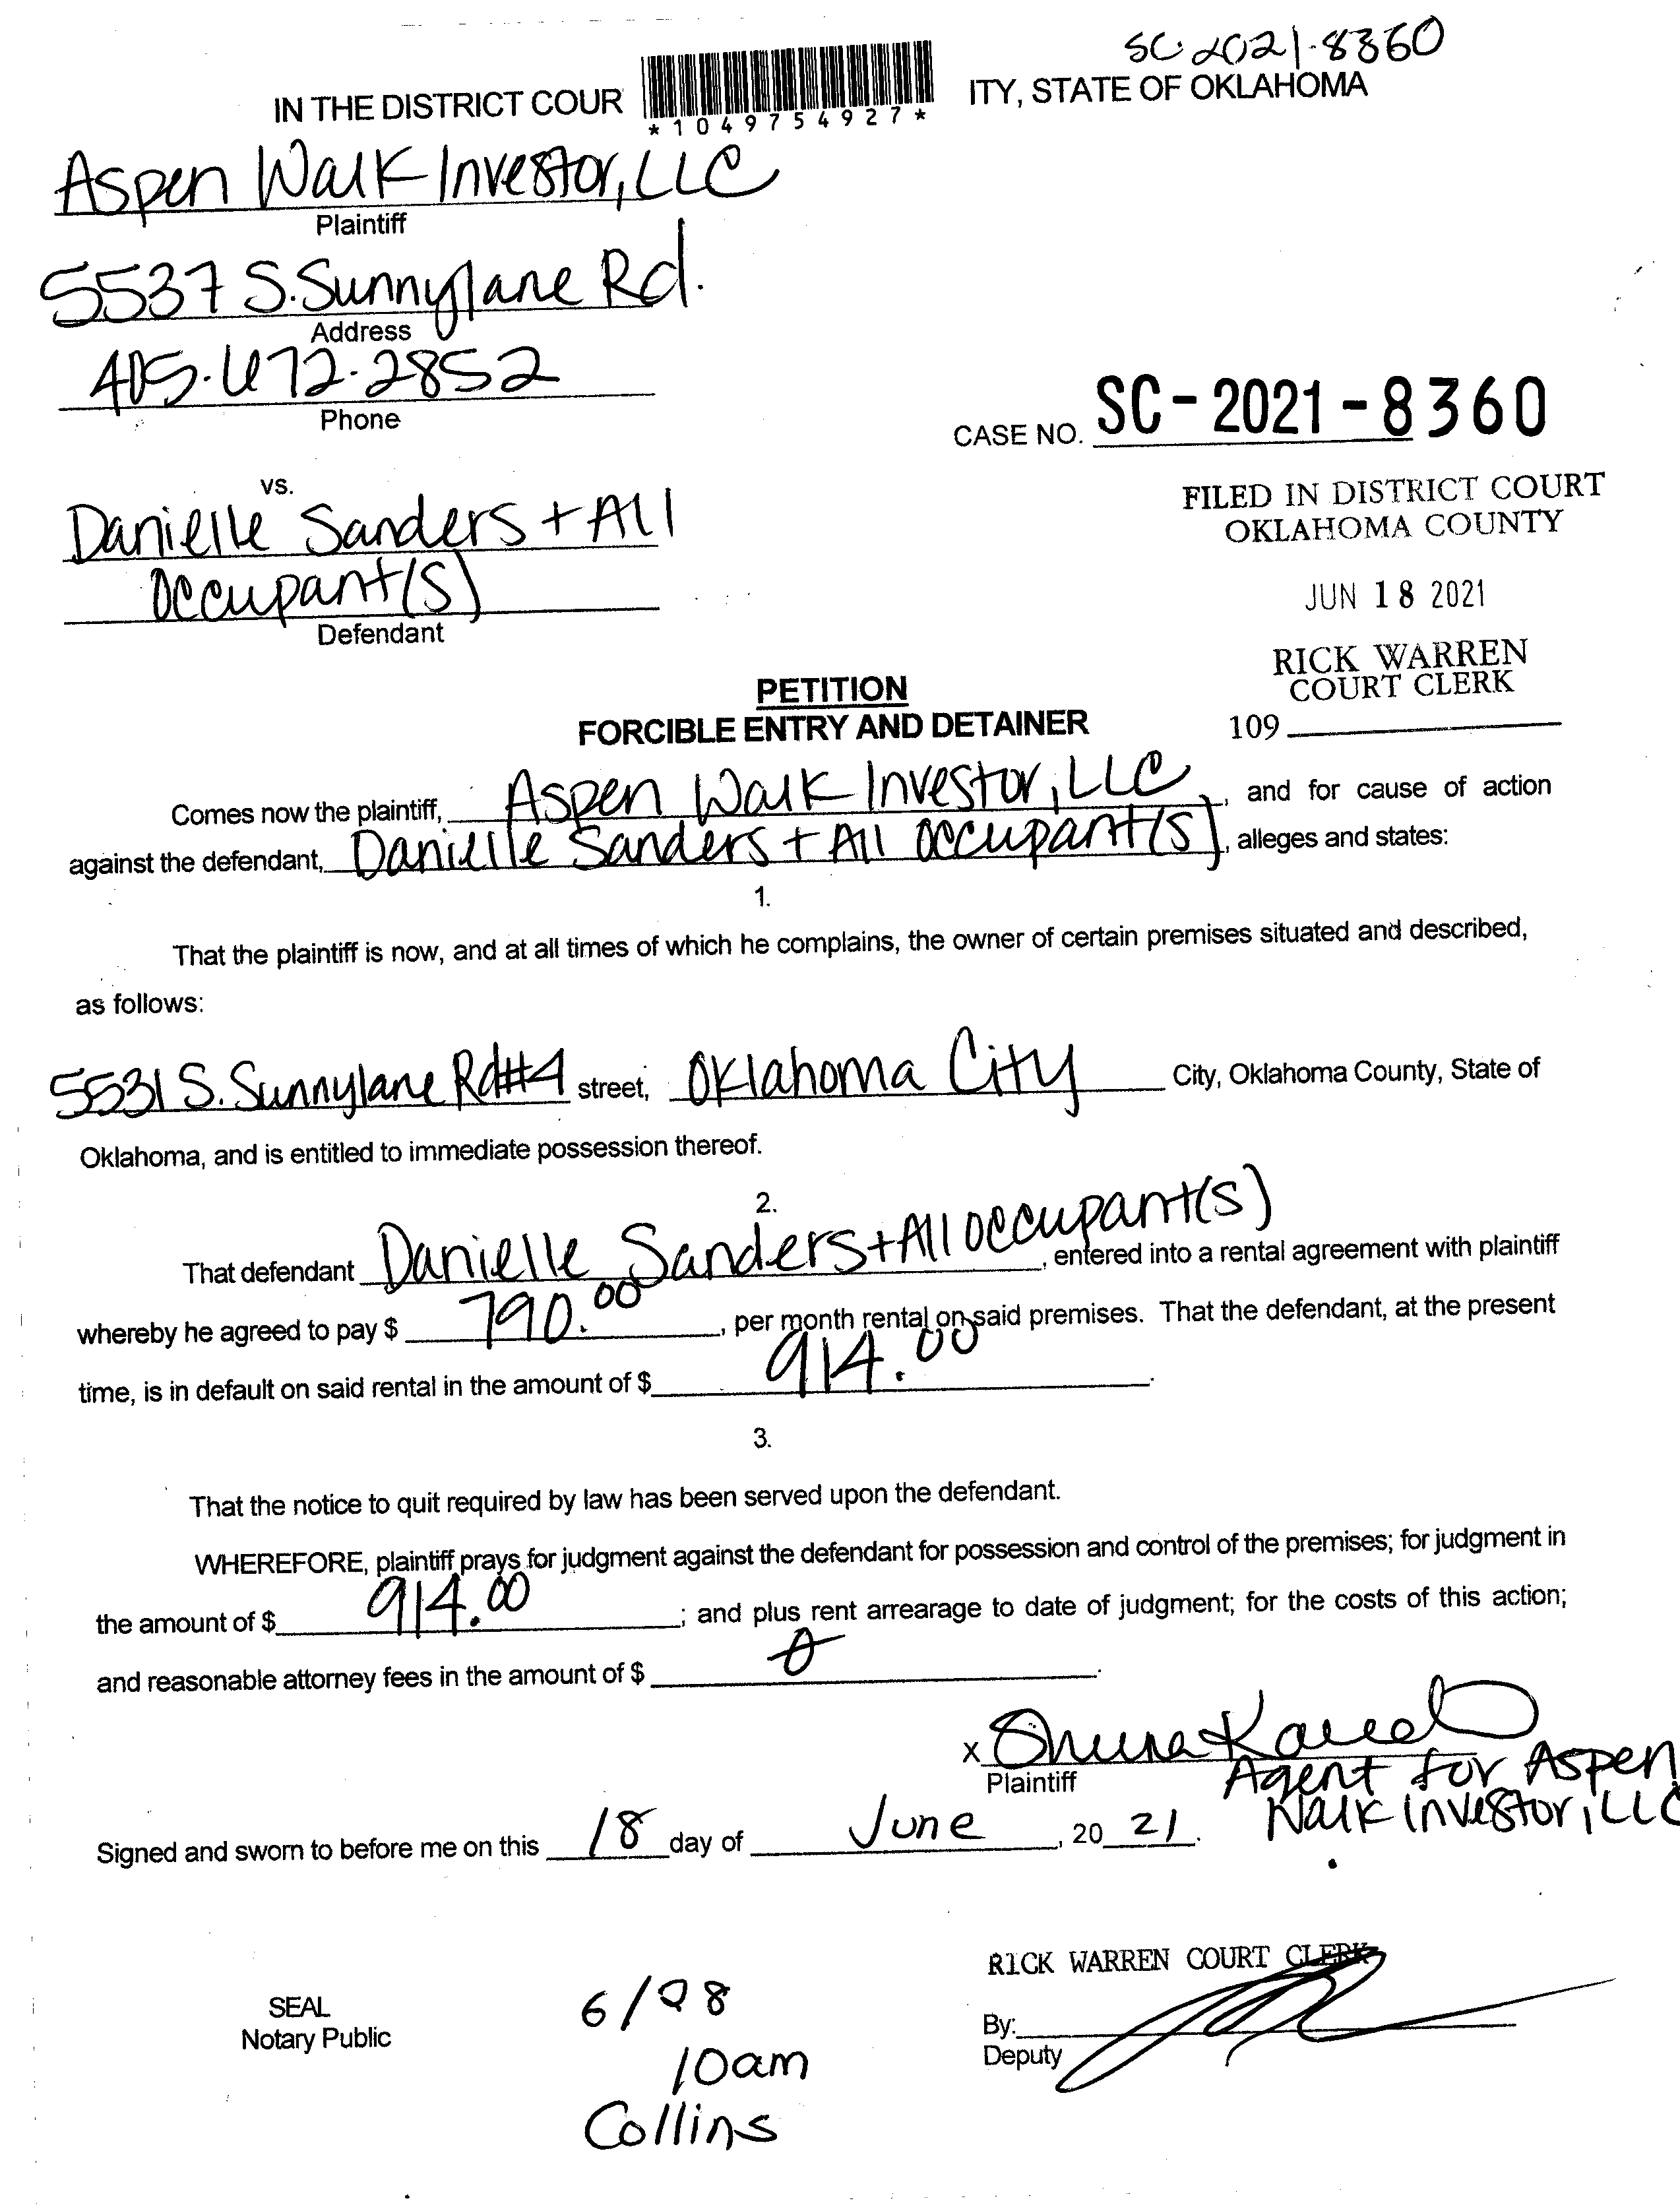 SC-2021-8360
IN THE DISTRICT COUR ITY, STATE OF OKLAHOMA
*1049754927*
Aspen Walk Investor, LLC
Plaintiff
5537 S. Sunnylane Rd.
Address
405-672-2852
Phone
CASE NO. SC-2021-8360
vs.
FILED IN DISTRICT COURT
OKLAHOMA COUNTY
Danielle Sanders + All
Occupant(s)
Defendant
JUN 18 2021
RICK WARREN
COURT CLERK
109
PETITION
FORCIBLE ENTRY AND DETAINER
Comes now the plaintiff, Aspen Walk Investor, LLC, and for cause of action
against the defendant, Danielle Sanders + All Occupant(s), alleges and states:
1.
That the plaintiff is now, and at all times of which he complains, the owner of certain premises situated and described,
as follows:
5531 S. Sunnylane Rd #4 street, Oklahoma City City, Oklahoma County, State of
Oklahoma, and is entitled to immediate possession thereof.
2.
That defendant Danielle Sanders + All Occupant(s), entered into a rental agreement with plaintiff
whereby he agreed to pay $ 790.00, per month rental on said premises. That the defendant, at the present
time, is in default on said rental in the amount of $ 914.00.
3.
That the notice to quit required by law has been served upon the defendant.
WHEREFORE, plaintiff prays for judgment against the defendant for possession and control of the premises; for judgment in
the amount of $ 914.00; and plus rent arrearage to date of judgment; for the costs of this action;
and reasonable attorney fees in the amount of $ 0.
X
Plaintiff
Agent for Aspen
Walk Investor, LLC
Signed and sworn to before me on this 18 day of June, 20 21.
RICK WARREN COURT CLERK
SEAL
Notary Public
6/28
10am
Collins
By:
Deputy